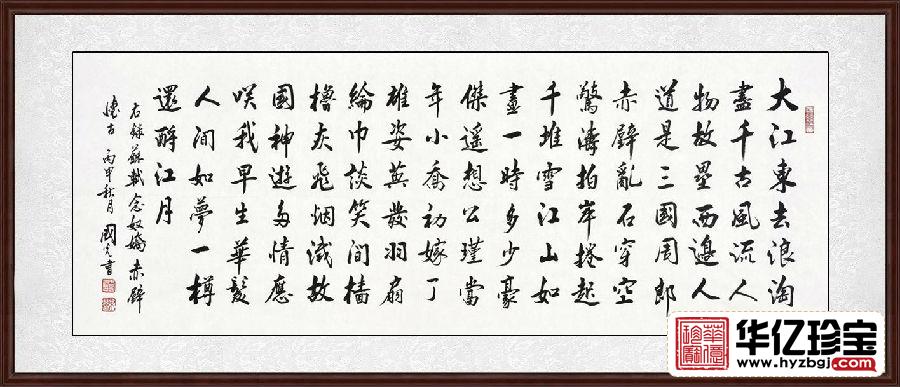 大江東去浪淘
盡千古風流人
物故壘西邊人
道是三國周郎
赤壁亂石穿空
驚濤拍岸捲起
千堆雪江山如
畫一時多少豪
傑遙想公瑾當
年小喬初嫁了
雄姿英發羽扇
綸巾談笑間檣
櫓灰飛烟滅故
國神遊多情應
咲我早生華髮
人間如夢一樽
還酹江月
右錄蘇軾念奴嬌赤壁
懷古 丙申秋月 國書
华亿珍宝
www.hyzbgj.com